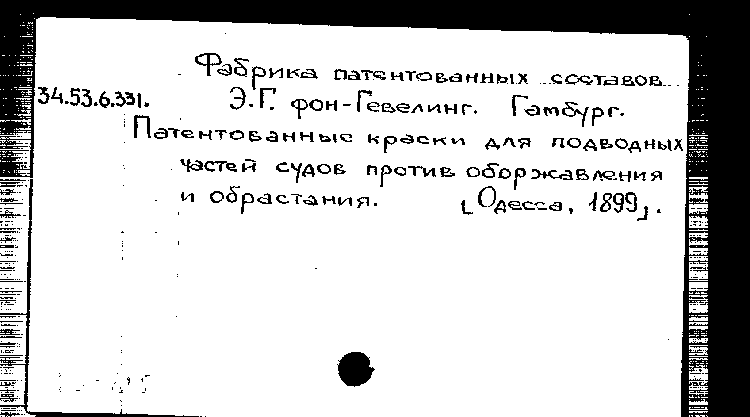 Фабрика патентованных составов
34.53.6.331. Э.Г. фон-Гевелинг. Гамбург.
Патентованные краски для подводных
частей судов против оборжавления
и обрастания. [Одесса, 1899].